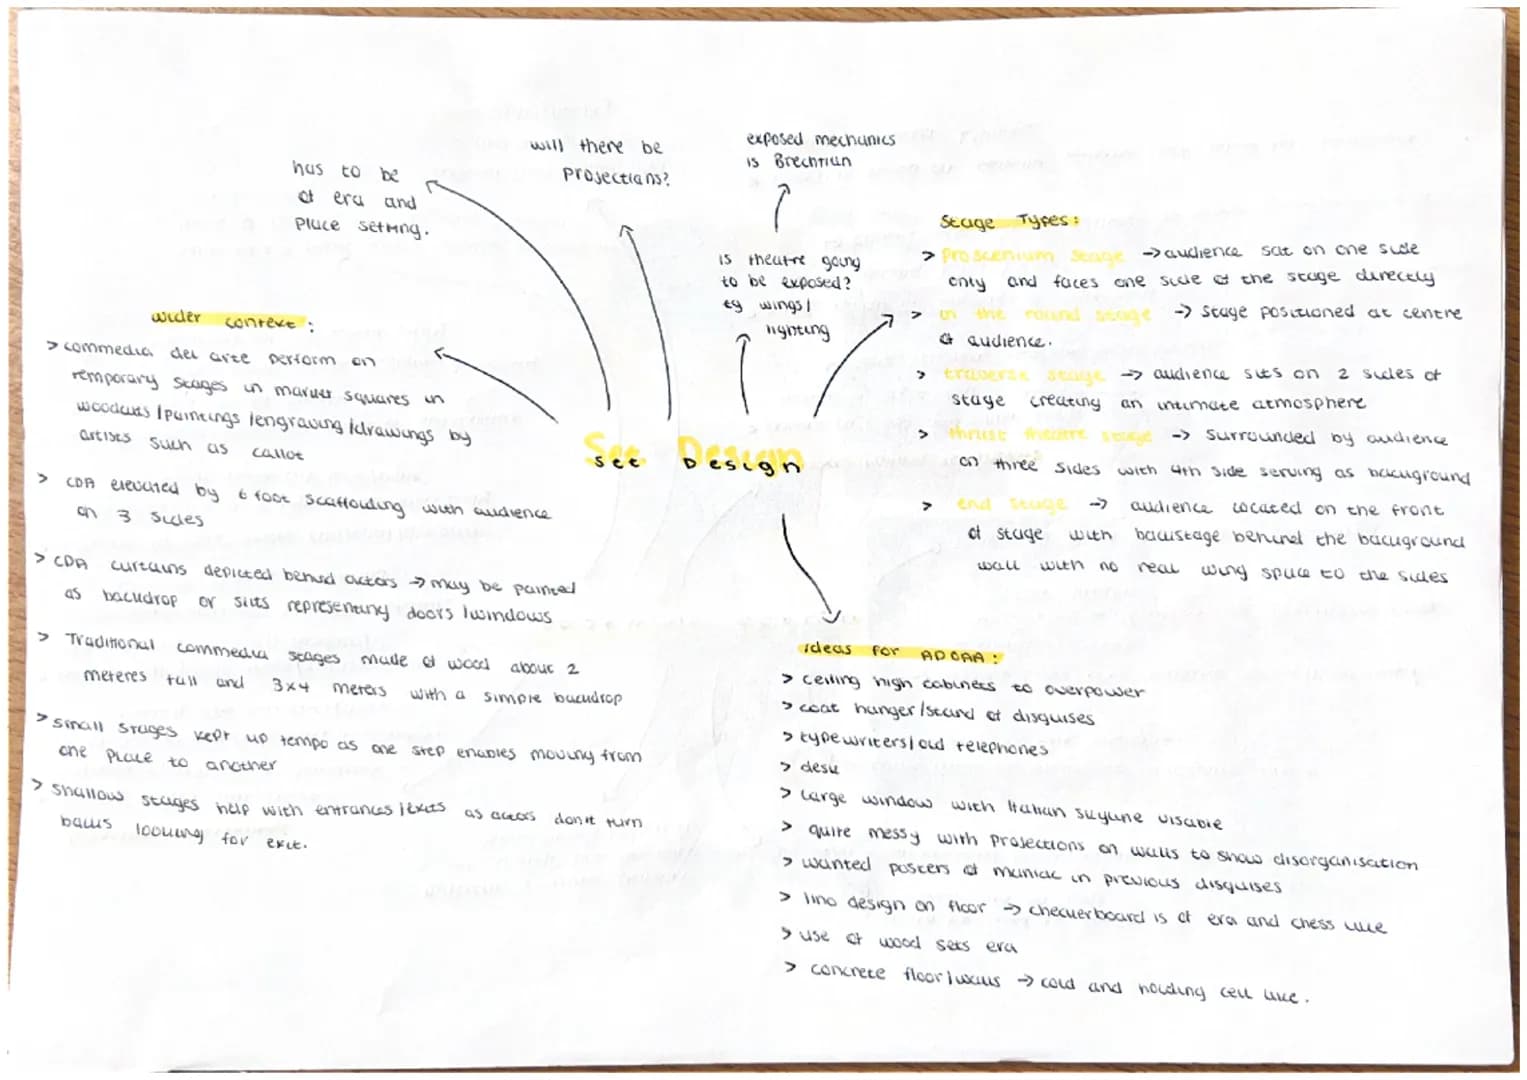 has to be
of era and
place setting.
will there be
projections?
exposed mechanics
is Brechtian
is theatre going
to be exposed?
eg wings/
lighting
Stage Types:
> proscenium stage → audience sat on one side
only and faces one side of the stage directly
> in the round stage → stage positioned at centre
of audience.
> traverse stage → audience sits on 2 sides of
stage creating an intimate atmosphere
> thrust theatre stage → surrounded by audience
on three sides with 4th side serving as background
> end stage → audience located on the front
of stage with backstage behind the background
wall with no real wing space to the sides
Set Design
wider context:
> commedia del arte perform on
temporary stages in market squares in
woodcuts/paintings/engraving/drawings by
artists such as callot
> CDA elevated by 6 foot scaffolding with audience
on 3 sides
> CDA curtains depicted behind actors → may be painted
as backdrop or slits representing doors/windows
> Traditional commedia stages made of wood about 2
meteres tall and 3x4 meters with a simple backdrop
> small stages kept up tempo as one step enables moving from
one place to another
> shallow stages help with entrances/exits as actors don't turn
backs looking for exit.
ideas for ADOAA:
> ceiling high cabinets to overpower
> coat hanger/stand of disguises
> typewriters/old telephones
> desk
> large window with Italian skyline visable
> quite messy with projections on walls to show disorganisation
> wanted posters of maniac in previous disguises
> lino design on floor → checkerboard is of era and chess like
> use of wood sets era
> concrete floor/walls → cold and holding cell like.